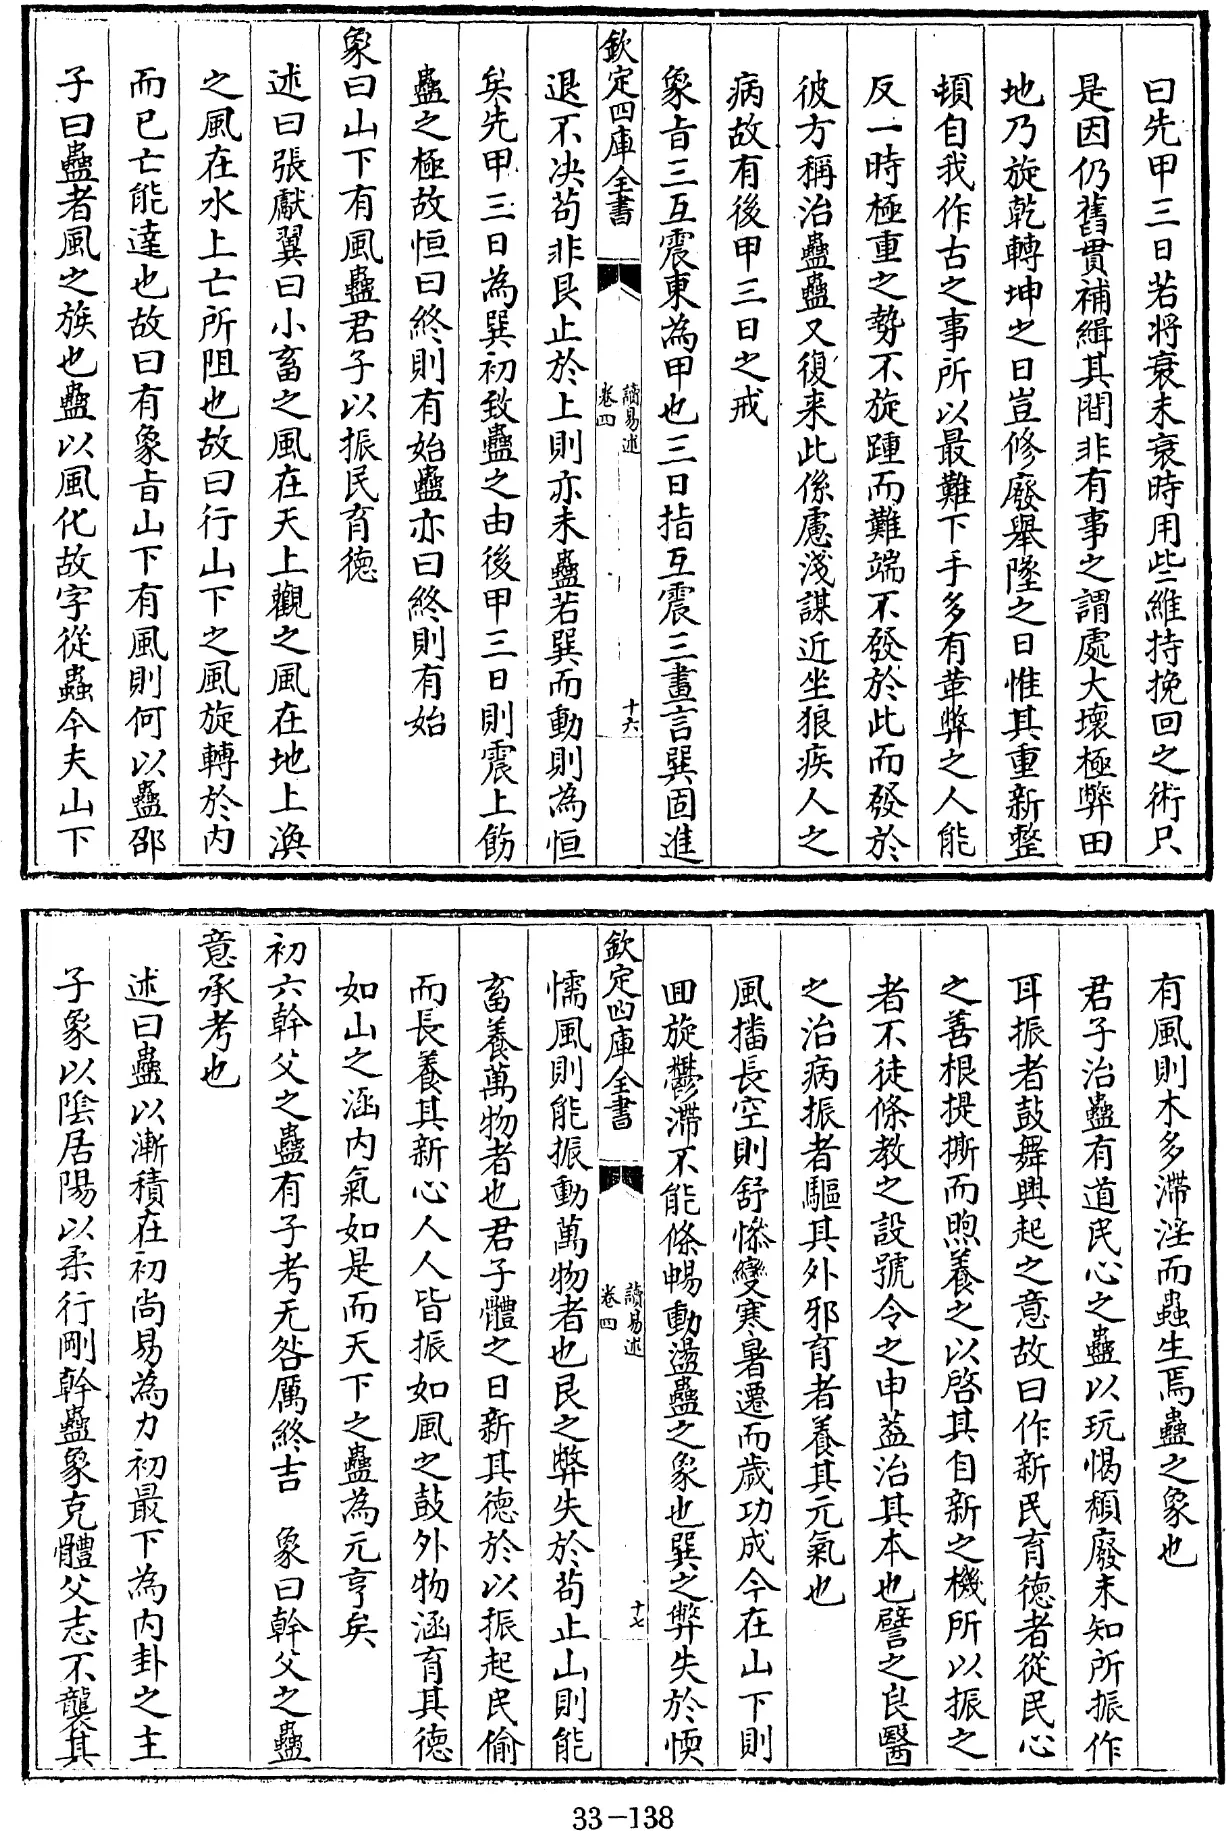 曰先甲三日若将衰未衰時用些維持挽回之術只
是因仍舊貫補緝其間非有事之謂處大壞極弊田
地乃旋乾轉坤之日豈修廢舉墜之日惟其重新整
頓自我作古之事所以最難下手多有革弊之人能
反一時極重之勢不旋踵而難端不發於此而發於
彼方稱治蠱蠱又復来此係慮淺謀近坐狼疾人之
病故有後甲三日之戒
彖㫖三互震東為甲也三日指互震三畫言巽固進
欽定四庫全書
讀易述
卷四
十六
退不决苟非艮止於上則亦未蠱若巽而動則為恒
矣先甲三日為巽初致蠱之由後甲三日則震上飭
蠱之極故恒曰終則有始蠱亦曰終則有始
象曰山下有風蠱君子以振民育德
述曰張獻翼曰小畜之風在天上觀之風在地上渙
之風在水上亡所阻也故曰行山下之風旋轉於内
而已亡能達也故曰有象㫖山下有風則何以蠱邵
子曰蠱者風之族也蠱以風化故字從蟲今夫山下
有風則木多滯淫而蟲生焉蠱之象也
君子治蠱有道民心之蠱以玩愒頹廢未知所振作
耳振者鼓舞興起之意故曰作新民育德者從民心
之善根提撕而煦養之以啓其自新之機所以振之
者不徒條教之設號令之申葢治其本也譬之良醫
之治病振者驅其外邪育者養其元氣也
風擂長空則舒慘變寒暑遷而歲功成今在山下則
囬旋鬱滯不能條暢動盪蠱之象也巽之弊失於愞
欽定四庫全書
讀易述
卷四
十七
懦風則能振動萬物者也艮之弊失於苟止山則能
畜養萬物者也君子體之日新其德於以振起民偷
而長養其新心人人皆振如風之鼓外物涵育其德
如山之涵内氣如是而天下之蠱為元亨矣
初六幹父之蠱有子考无咎厲終吉 象曰幹父之蠱
意承考也
述曰蠱以漸積在初尚易為力初最下為内卦之主
子象以陰居陽以柔行剛幹蠱象克體父志不襲其
33-138